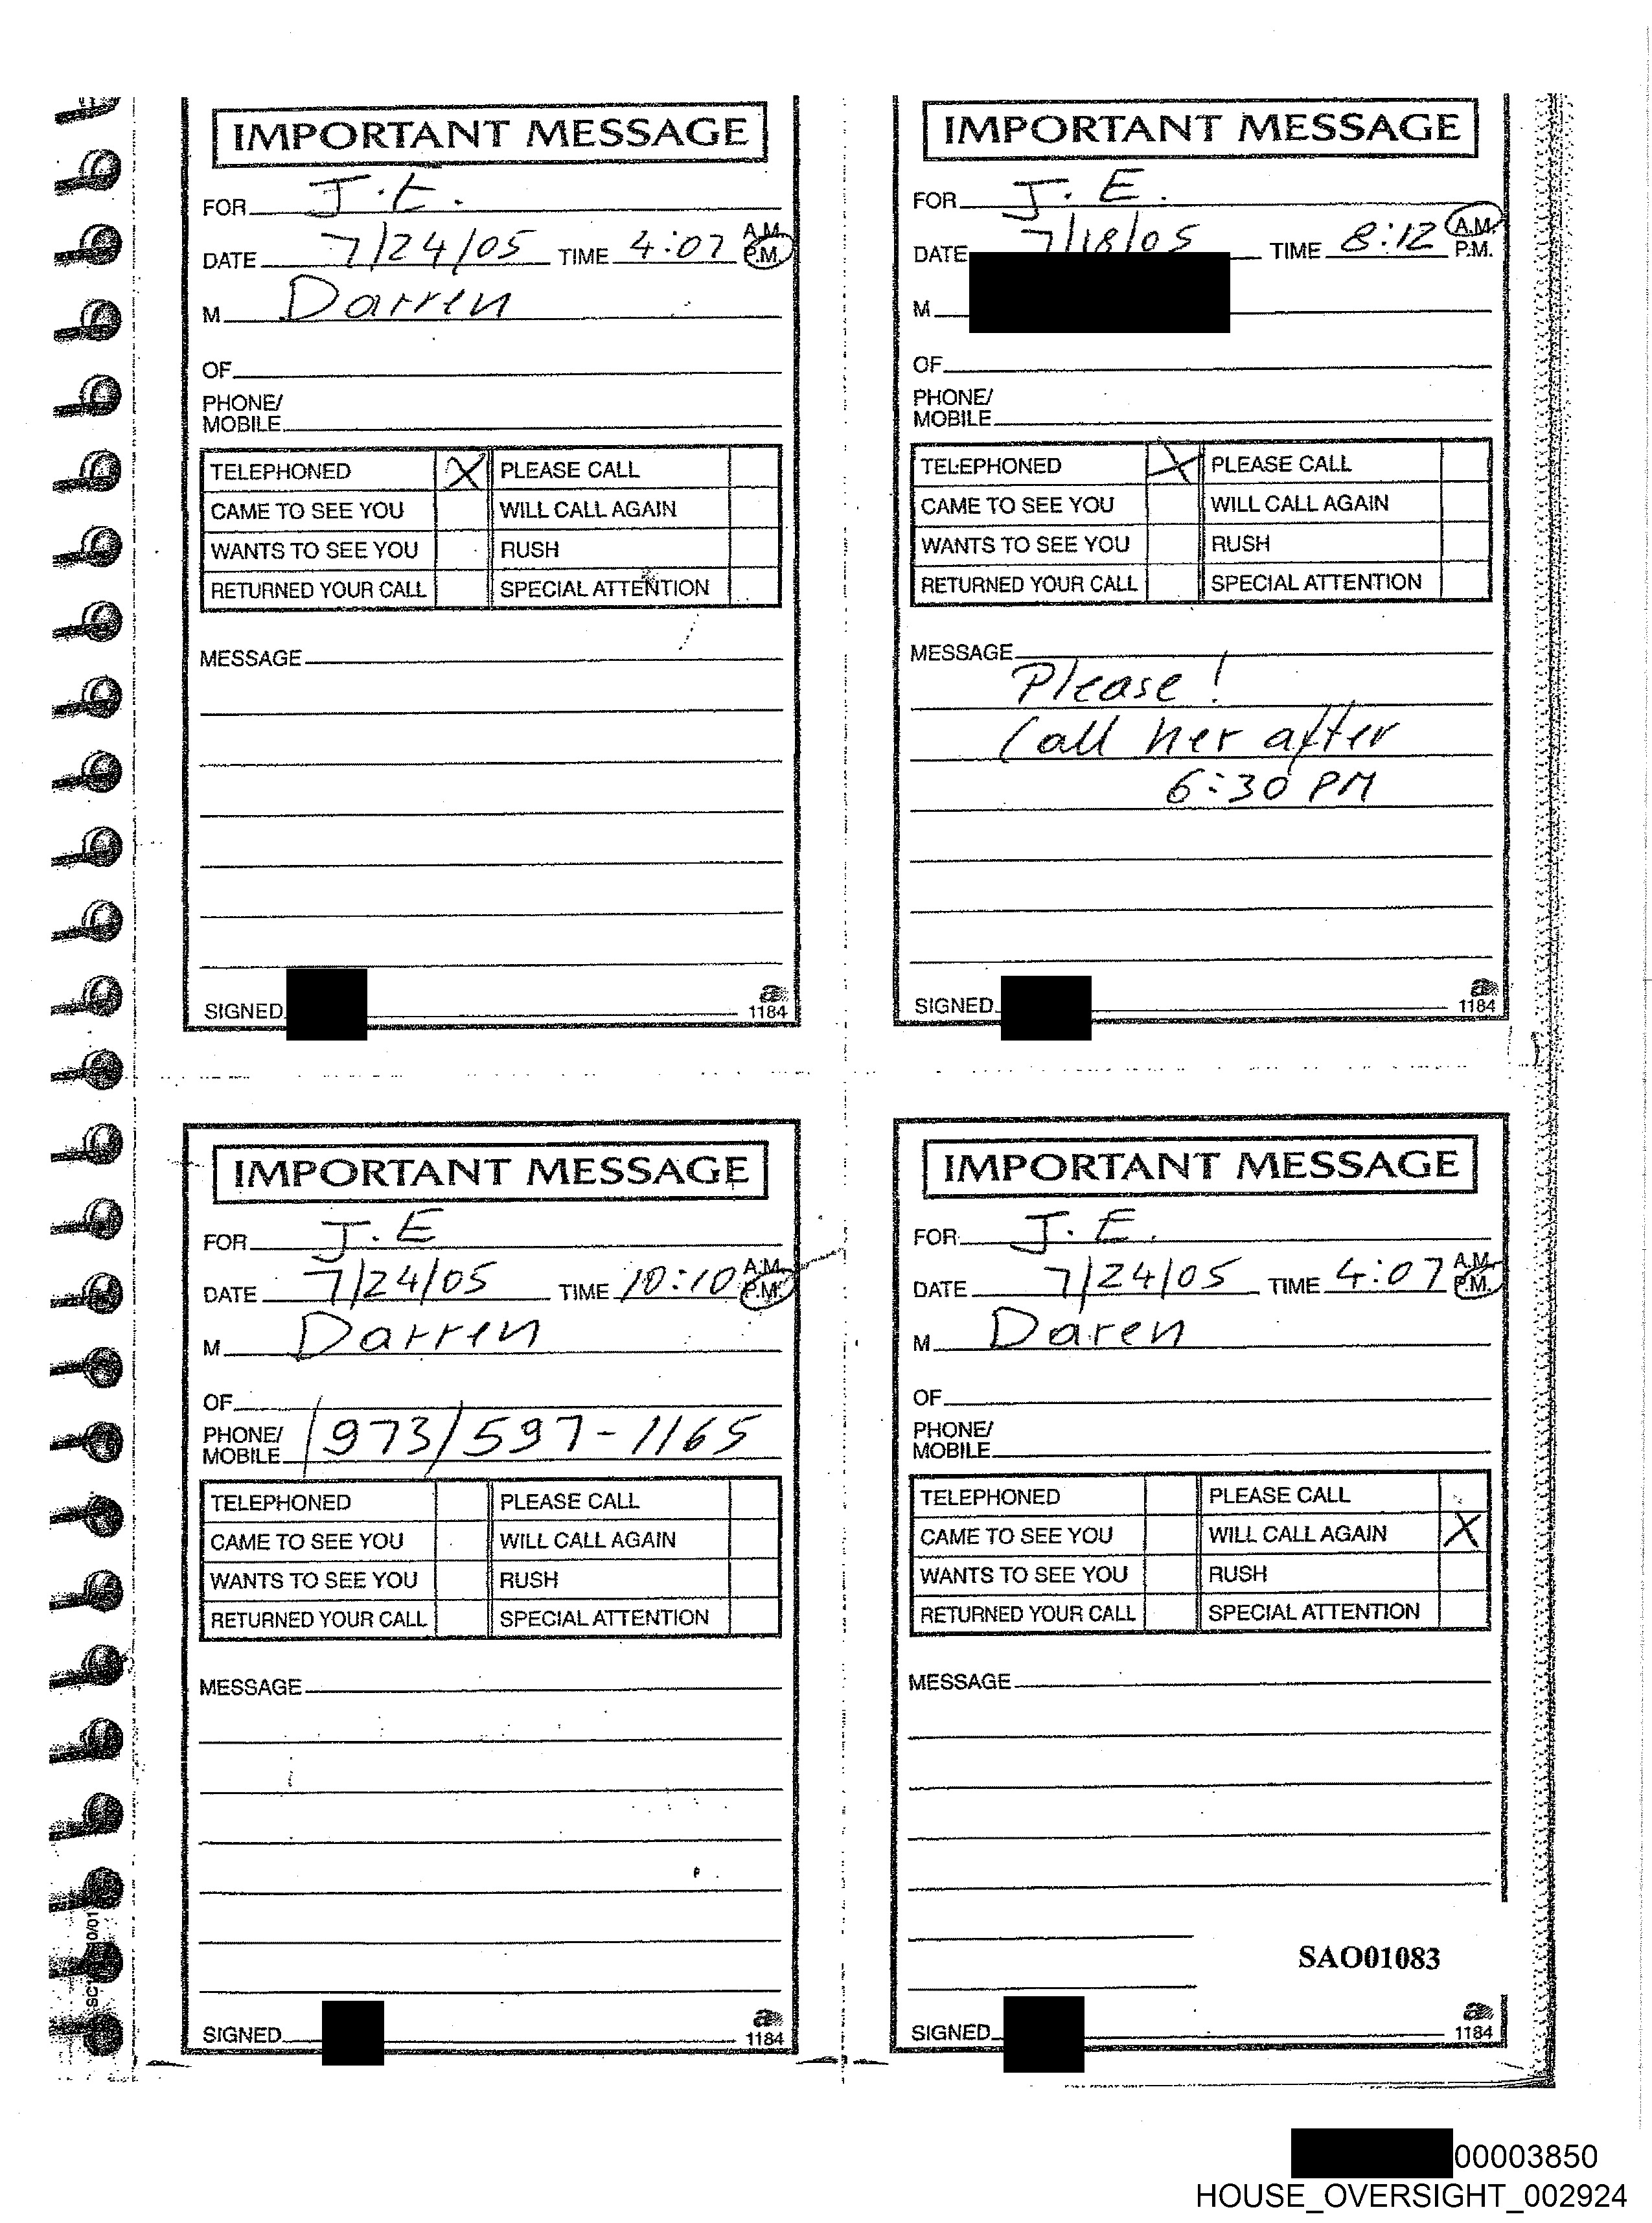 IMPORTANT MESSAGE
FOR J.E.
DATE 7/24/05 TIME 4:07 A.M. P.M.
M Darren
OF
PHONE/
MOBILE
TELEPHONED X PLEASE CALL
CAME TO SEE YOU WILL CALL AGAIN
WANTS TO SEE YOU RUSH
RETURNED YOUR CALL SPECIAL ATTENTION
MESSAGE
SIGNED
1184
IMPORTANT MESSAGE
FOR J.E.
DATE 7/18/05 TIME 8:12 A.M. P.M.
M
OF
PHONE/
MOBILE
TELEPHONED X PLEASE CALL
CAME TO SEE YOU WILL CALL AGAIN
WANTS TO SEE YOU RUSH
RETURNED YOUR CALL SPECIAL ATTENTION
MESSAGE
Please!
Call her after
6:30 PM
SIGNED
1184
IMPORTANT MESSAGE
FOR J.E
DATE 7/24/05 TIME 10:10 A.M. P.M.
M Darren
OF
PHONE/
MOBILE (973) 597-1165
TELEPHONED PLEASE CALL
CAME TO SEE YOU WILL CALL AGAIN
WANTS TO SEE YOU RUSH
RETURNED YOUR CALL SPECIAL ATTENTION
MESSAGE
SIGNED
1184
IMPORTANT MESSAGE
FOR J.E.
DATE 7/24/05 TIME 4:07 A.M. P.M.
M Daren
OF
PHONE/
MOBILE
TELEPHONED PLEASE CALL
CAME TO SEE YOU WILL CALL AGAIN X
WANTS TO SEE YOU RUSH
RETURNED YOUR CALL SPECIAL ATTENTION
MESSAGE
SAO01083
SIGNED
1184
00003850
HOUSE_OVERSIGHT_002924